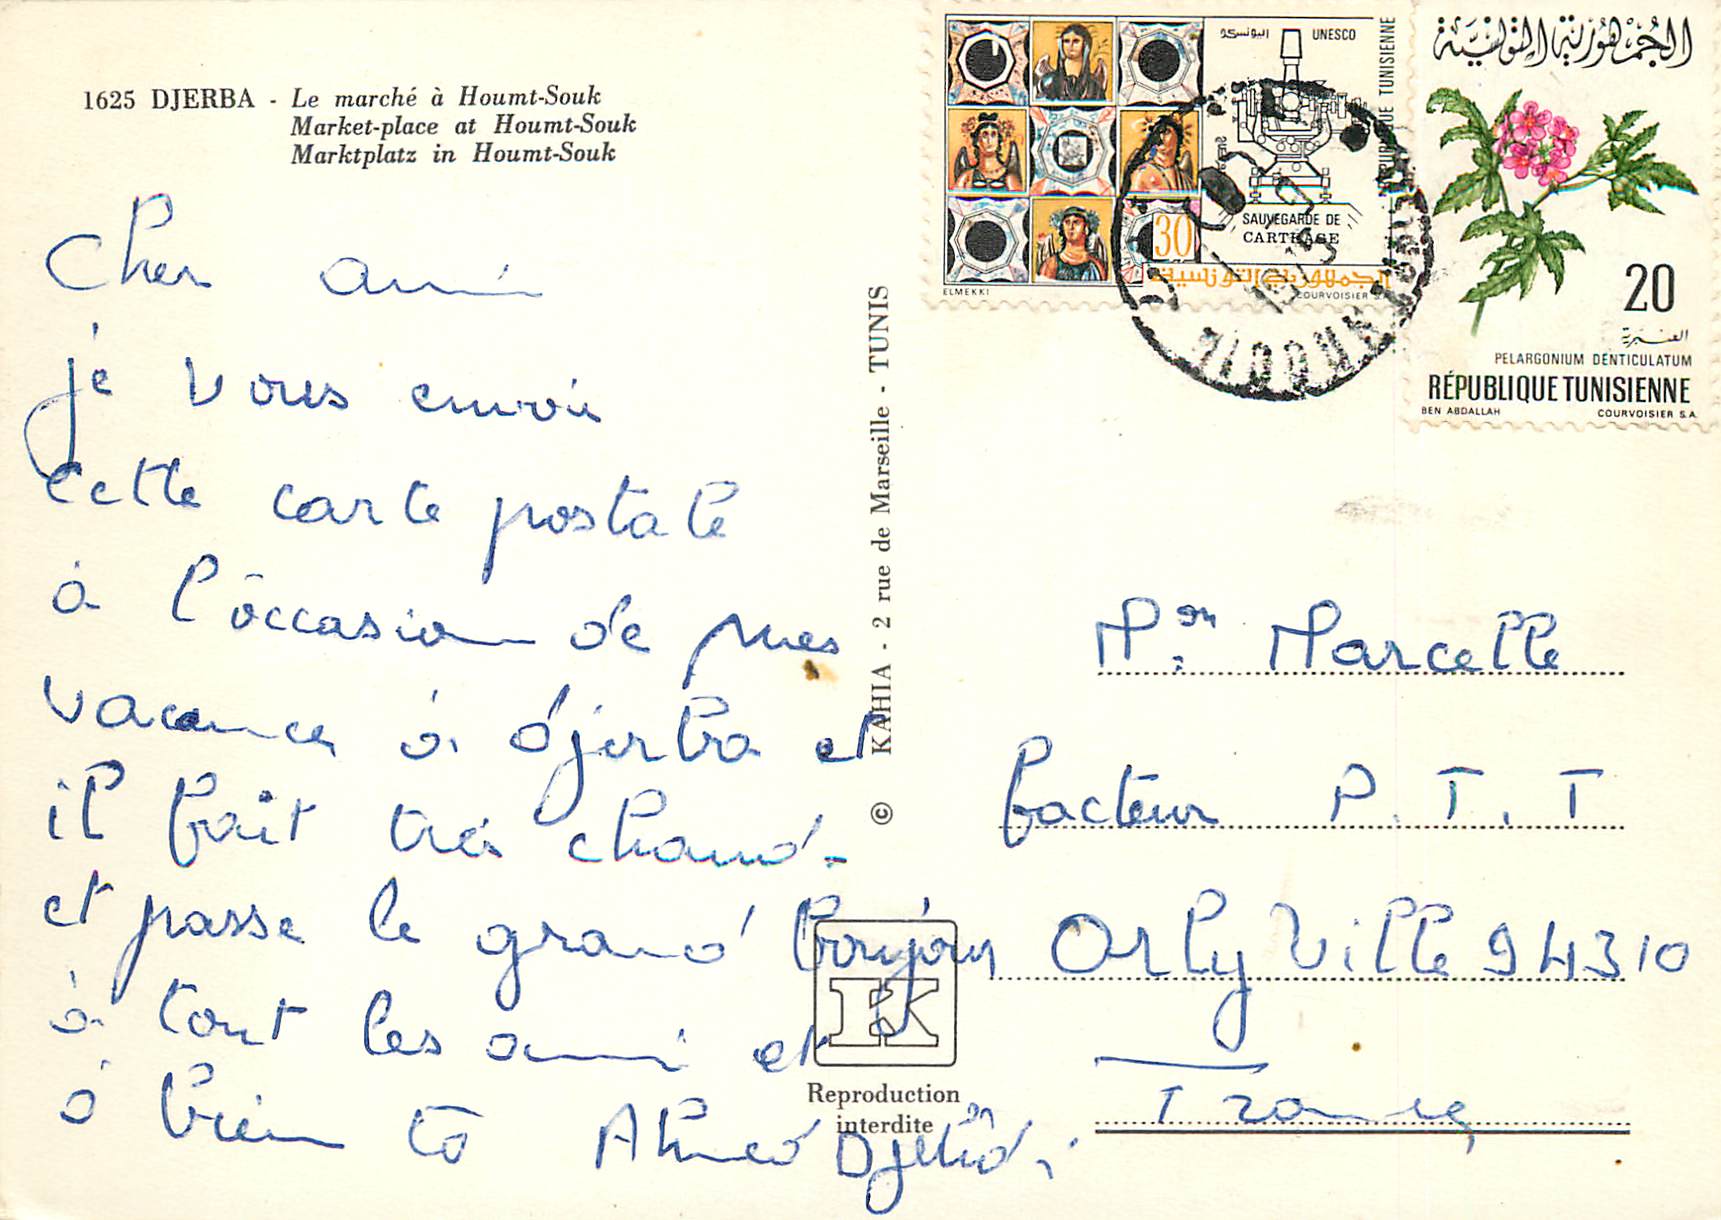 1625 DJERBA - Le marché à Houmt-Souk
Market-place at Houmt-Souk
Marktplatz in Houmt-Souk
Cher ami
je vous envoi
cette carte postale
à l'occasion de mes
vacances à djerba et
il fait très chaud.
et passe le grand bonjour
à tout les ami et
à bien to Ahmed
© KAHIA - 2 rue de Marseille - TUNIS
K
Reproduction
interdite
اليونسكو UNESCO
RÉPUBLIQUE TUNISIENNE
SAUVEGARDE DE
CARTHAGE
30
الجمهورية التونسية
ELMEKKI
COURVOISIER S.A.
الجمهورية التونسية
20
PELARGONIUM DENTICULATUM
RÉPUBLIQUE TUNISIENNE
BEN ABDALLAH
COURVOISIER S.A.
Mon. Marcelle
facteur P.T.T
Orly Ville 94310
France